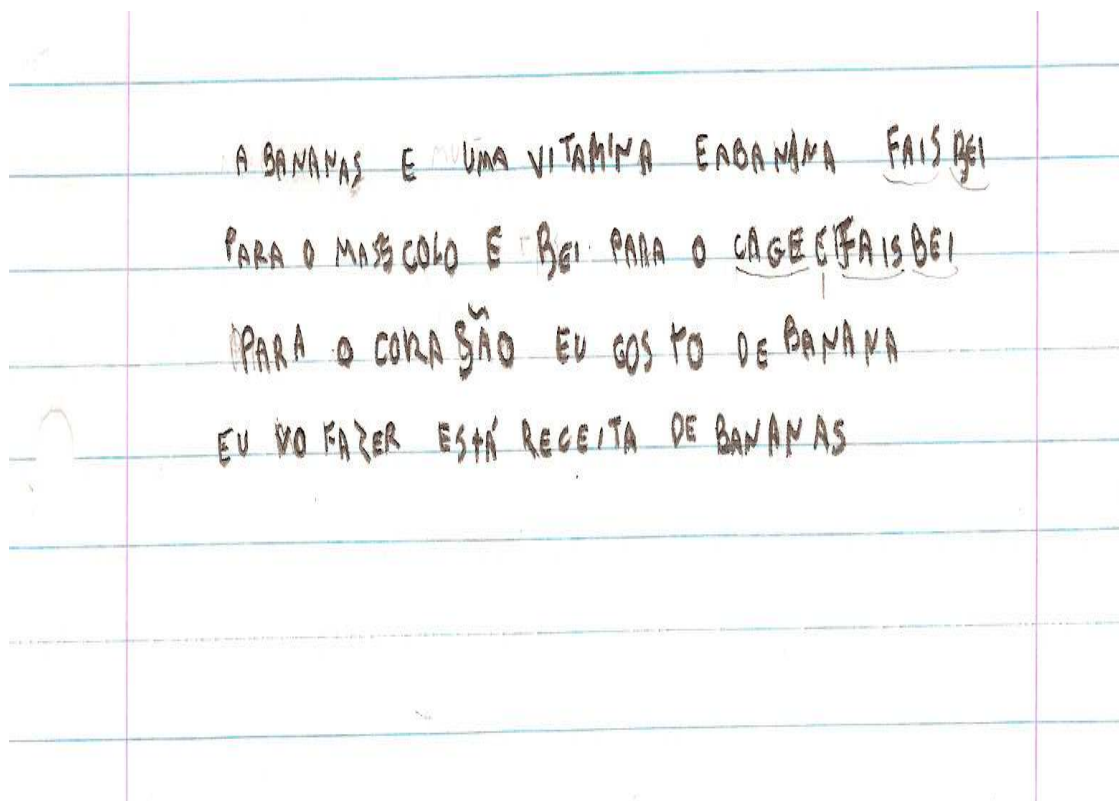 A BANANAS E UMA VITAMINA EABANANA FAIS BEI
PARA O MASSCOLO E BEI PARA O CAGE E FAIS BEI
PARA O CORASÃO EU GOSTO DE BANANA
EU VO FAZER ESTÁ RECEITA DE BANANAS